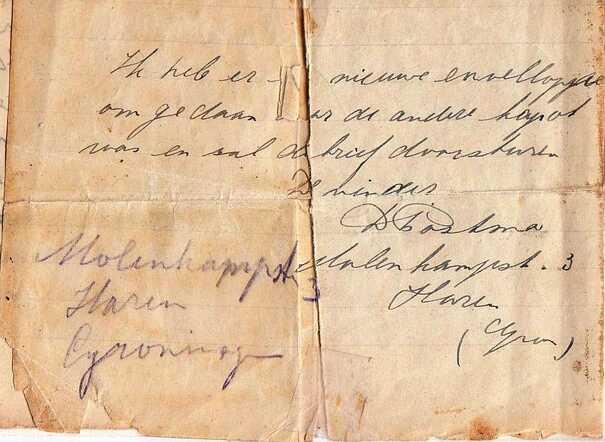 Ik heb er een nieuwe enveloppe
om gedaan daar de andere kapot
was en sal de brief doorsturen
De vinder
D Postma
Molenkampst. 3
Haren
(Gron)
Molenkampst 3
Haren
Gyroningen